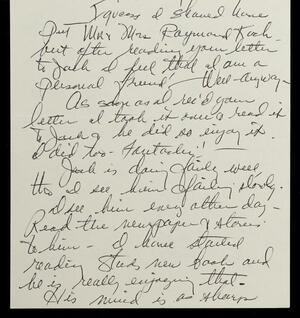 I guess I should have
put Mr & Mrs Raymond
but after reading your letter
to Jack I feel that I am a
personal friend - Well - anyway -
As soon as I rec'd your
letter I took it over & read it
to Jack & he did so enjoy it.
I did too - fantastic!
Jack is doing fairly well
tho I see him failing slowly.
I see him every other day -
Read the newspaper & stories
to him - I have started
reading new book and
he is really enjoying that -
His mind is as sharp